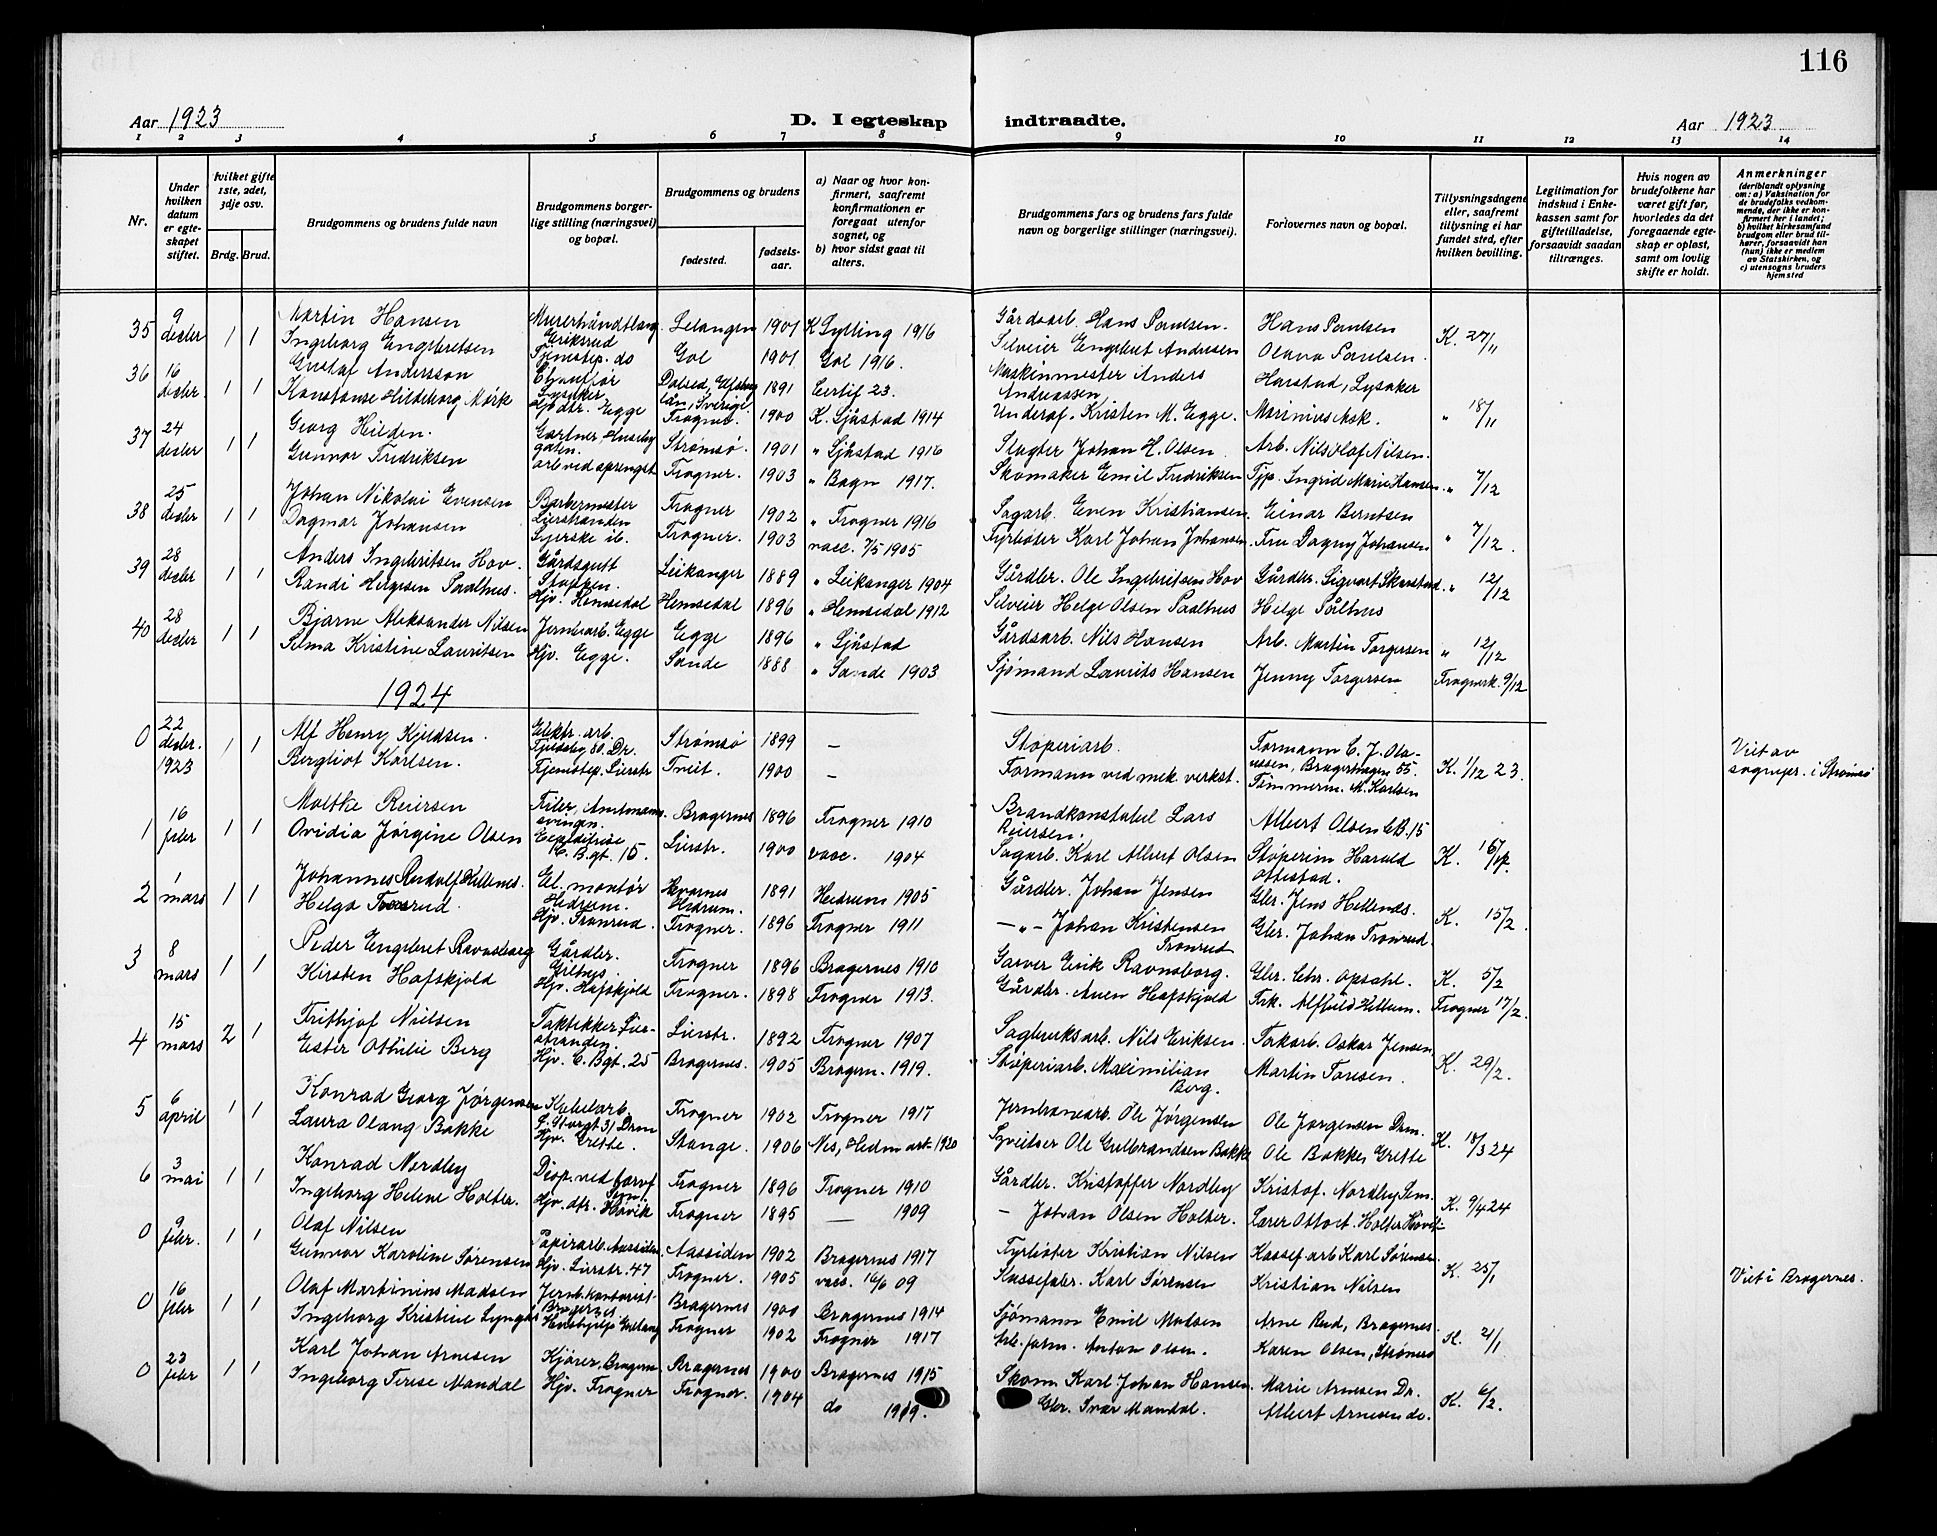 116
Aar 1923
D. I egteskap indtraadte.
Aar 1923
1 2 3 4 5 6 7 8 9 10 11 12 13 14
Nr.
Under hvilken datum er egteskapet stiftet.
hvilket gifte 1ste, 2det, 3dje osv.
Brdg. Brud.
Brudgommens og brudens fulde navn
Brudgommens borgerlige stilling (næringsvei) og bopæl.
Brudgommens og brudens
fødested.
fødselsaar.
a) Naar og hvor konfirmert, saafremt konfirmationen er foregaat utenfor sognet, og
b) hvor sidst gaat til alters.
Brudgommens fars og brudens fars fulde navn og borgerlige stillinger (næringsvei).
Forlovernes navn og bopæl.
Tillysningsdagene eller, saafremt tillysning ei har fundet sted, efter hvilken bevilling.
Legitimation for indskud i Enkekassen samt for giftetilladelse, forsaavidt saadan tiltrænges.
Hvis nogen av brudefolkene har været gift før, hvorledes da det foregaaende egteskap er opløst, samt om lovlig skifte er holdt.
Anmerkninger
(deriblandt oplysning om: a) Vaksination for de brudefolks vedkommende, der ikke er konfirmert her i landet; b) hvilket kirkesamfund brudgom eller brud tilhører, forsaavidt han (hun) ikke er medlem av Statskirken, og c) utensogns bruders hjemsted
35 9 desbr 1 1 Martin Hansen Murerhåndtlang Eriksrud 1901 K Gylling 1916 Hans Paulsen. Hans Paulsen K. 27/11
Ingeborg Engebretsen Tjenstep. do Gol 1901 Gol 1916. Engebret Andersen Olava Paulsen.
36 16 desbr 1 1 Gustaf Andersson Chauffør Lysaker Dalsed, Elfsborg län, Sverige 1891 Certif 23. Maskinmester Anders Andreassen Harstad, Lysaker
Konstanse Hildeborg Mørk Hjv. dtr. Egge Frogner. 1900 K. Sjåstad 1914 Underof. Kristen M. Egge. Marinius Ask. " 18/11
37 24 desbr 1 1 Georg Hilden. Gartner Huseby gaten. Strømsø. 1901 " Sjåstad 1916 Slagter Johan H. Olsen. Arb. Nils Olaf Nilsen.
Gunnor Fredriksen arb ved sprengst. Frogner. 1903 " Bagn 1917. Skomaker Emil Fredriksen Typ. Ingrid Marie Hansen. " 7/12
38 25 desbr 1 1 Johan Nikolai Evensen Barbermester Lierstranden Frogner 1902 " Frogner 1916 Sagarb. Even Kristiansen. Einar Berntsen
Dagmar Johansen Syerske ib. Frogner. 1903 vacc. 7/5 1905 Fyrbøter Karl Johan Johansen. Fru Dagny Johansen " 7/12.
39 28 desbr 1 1 Anders Ingebritsen Hov. Gårdsgutt Leikanger 1889 " Leikanger 1904 Gårdbr. Ole Ingebritsen Hov Gårdbr. Sigvart Skarstad. " 12/12
Randi Helgesen Paalhus. Hjv. Hemsedal Hemsedal 1896 " Hemsedal 1912 Helge Olsen Paalhus Helge Pålhus
40 28 desbr 1 1 Bjarne Aleksander Nilsen Jernbarb. Egge Egge 1896 " Sjåstad Gårdsarb. Nils Hansen Arb. Martin Torgersen " 12/12
Selma Kristine Lauritsen Hjv. Egge. Sande 1888 " Sande 1903 Sjømand Laurits Hansen Jenny Torgersen Frognerk. 9/12
1924
0 22 desbr. 1923 1 1 Alf Henry Kjeldsen. Elektr. arb. 80. Dr. Strømsø 1899 — Støperiarb. Formann C. J. Olaussen, Bragerhagen 55. Viet av
Bergliot Karlsen. Tjenstep. Lierstr Tveit. 1900 — Formann ved mek. verkst. Tømmerm. M. Karlsen K. 1/12 23. sognepr. i Strømsø
1 16 febr 1 1 Moltke Reiersen Filer, Amtmannsvingen. Bragernes 1896 Frogner 1910 Brandkonstabel Lars Reiersen. Albert Olsen C.B. 15
Ovidia Jørgine Olsen C. Bgt. 15. Lierstr. 1900 vacc. 1904 Sagarb. Karl Albert Olsen Støperim Harald Ottestad. K.
2 1 mars 1 1 Johannes Rudolf Hellenes. El. montør Hedrum. Hvarnes Hedrum. 1891 Hedrum 1905 Gårdbr. Johan Jensen Gbr. Jens Hellenes.
Helga Tronrud. Hjv. Tronrud. Frogner. 1896 Frogner 1911 — " — Johan Kristensen Tronrud Gbr. Johan Tronrud. K. 15/2.
3 8 mars 1 1 Peder Engebret Ravnsborg Gårdbr. Gilhus. Frogner 1896 Bragernes 1910 Garver Erik Ravnsborg. Gbr. Chr. Opsahl. K. 5/2
Kirsten Hafskjold Hjv. Hafskjold Frogner. 1898 Frogner 1913. Gårdbr. Aven Hafskjold Frk. Alfhild Hellum. Frogner 17/2.
4 15 mars 2 1 Frithjof Nielsen Taktekker Lierstranden. Lierstr. 1892 Frogner 1907 Sagbruksarb. Nils Eriksen. Takarb. Oskar Jensen.
Ester Othilie Berg Hjv. C. Bgt. 25 Bragernes. 1905 Bragern. 1919. Støperiarb. Maximilian Berg. Martin Toresen. K. 29/2.
5 6 april 1 1 Konrad Georg Jørgensen Kabelarb. G. Storgt 31 Drm Frogner 1902 Frogner 1917 Jernbanearb. Ole Jørgensen Ole Jørgensen Drm.
Laura Olaug Bakke Hjv. Grette. Stange. 1906 Nes, Hedmark 1920 Sveitser Ole Gulbrandsen Bakke Ole Bakke Grette K. 18/3 24
6 3 mai 1 1 Konrad Nordby Disp. ved farvf Frogner 1896 Frogner 1910 Gårdbr. Kristoffer Nordby Kristof. Nordby Sem.
Ingeborg Helene Holter. Hjv. dtr. Høvik Frogner 1895 — 1909 — Johan Olsen Holter. Lærer Ottot. Holter Høvik K. 9/4 24
0 9 febr. 1 1 Olaf Nilsen Papirarb. Aassiden Aassiden 1902 Bragernes 1917 Fyrbøter Kristian Nilsen Kassef. arb Karl Sørensen.
Gunvor Karoline Sørensen Hjv. Lierstr. 47 Frogner. 1905 vacs. 16/6 09 Kassefabr. Karl Sørensen Kristian Nilsen K. 25/1 Viet i Bragernes.
0 16 febr 1 1 Olaf Martinius Madsen Jernb. kontorist. Bragernes Bragernes 1900 Bragernes 1914 Sjømann Emil Madsen Arne Rud, Bragernes
Ingeborg Kristine Lyngås Frogner 1902 Frogner 1917 Arb. form. Anton Olsen. Karen Olsen, Strømsø K. 21/1
0 23 febr 1 1 Karl Johan Arnesen Kjører, Bragern. Bragernes 1900 Bragernes 1915 Skom. Karl Johan Hansen. Marie Arnesen Dr.
Ingeborg Terese Mandal Hjv. Frogner Frogner. 1904 do 1919. Gbr. Ivar Mandal. Albert Arnesen do. K. 6/2.